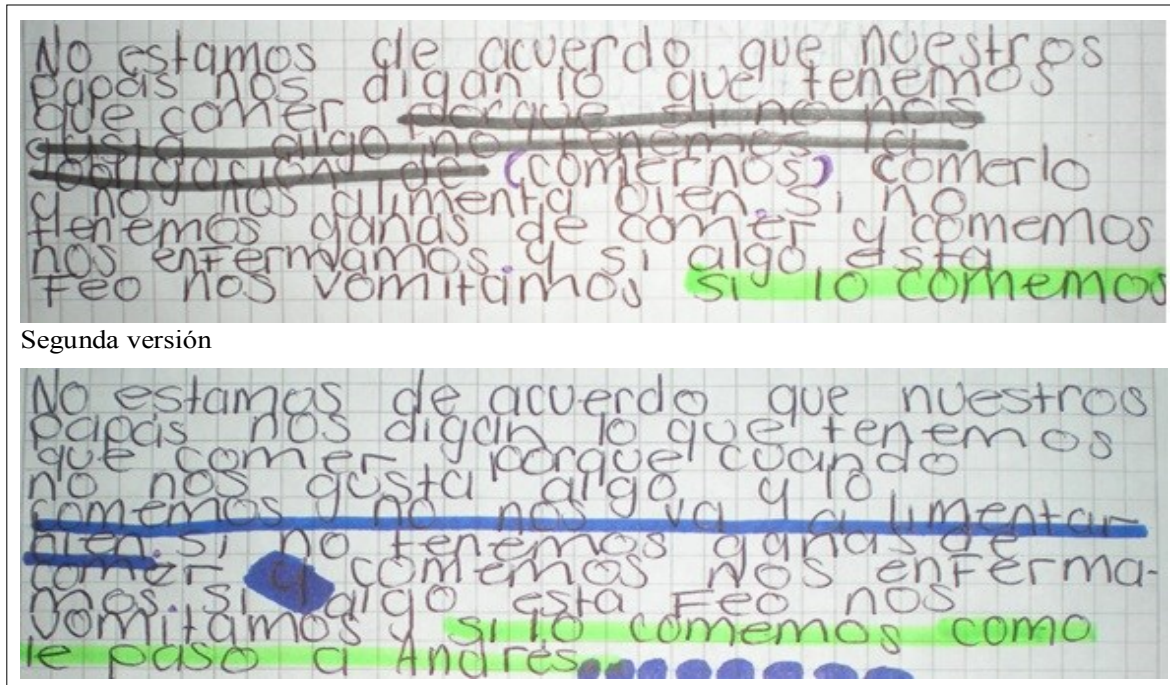 No estamos de acuerdo que nuestros
papás nos digan lo que tenemos
que comer porque si no nos
gusta algo no tenemos la
obligación de (comernos) comerlo
y no nos alimenta bien. si no
tenemos ganas de comer y comemos
nos enfermamos. y si algo esta
feo nos vomitamos si lo comemos
Segunda versión
No estamos de acuerdo que nuestros
papás nos digan lo que tenemos
que comer porque cuando
no nos gusta algo y lo
comemos no nos va a limentar
bien. si no tenemos ganas de
comer y comemos nos enferma-
mos. si algo esta feo nos
vomitamos si lo comemos como
le paso a Andrés